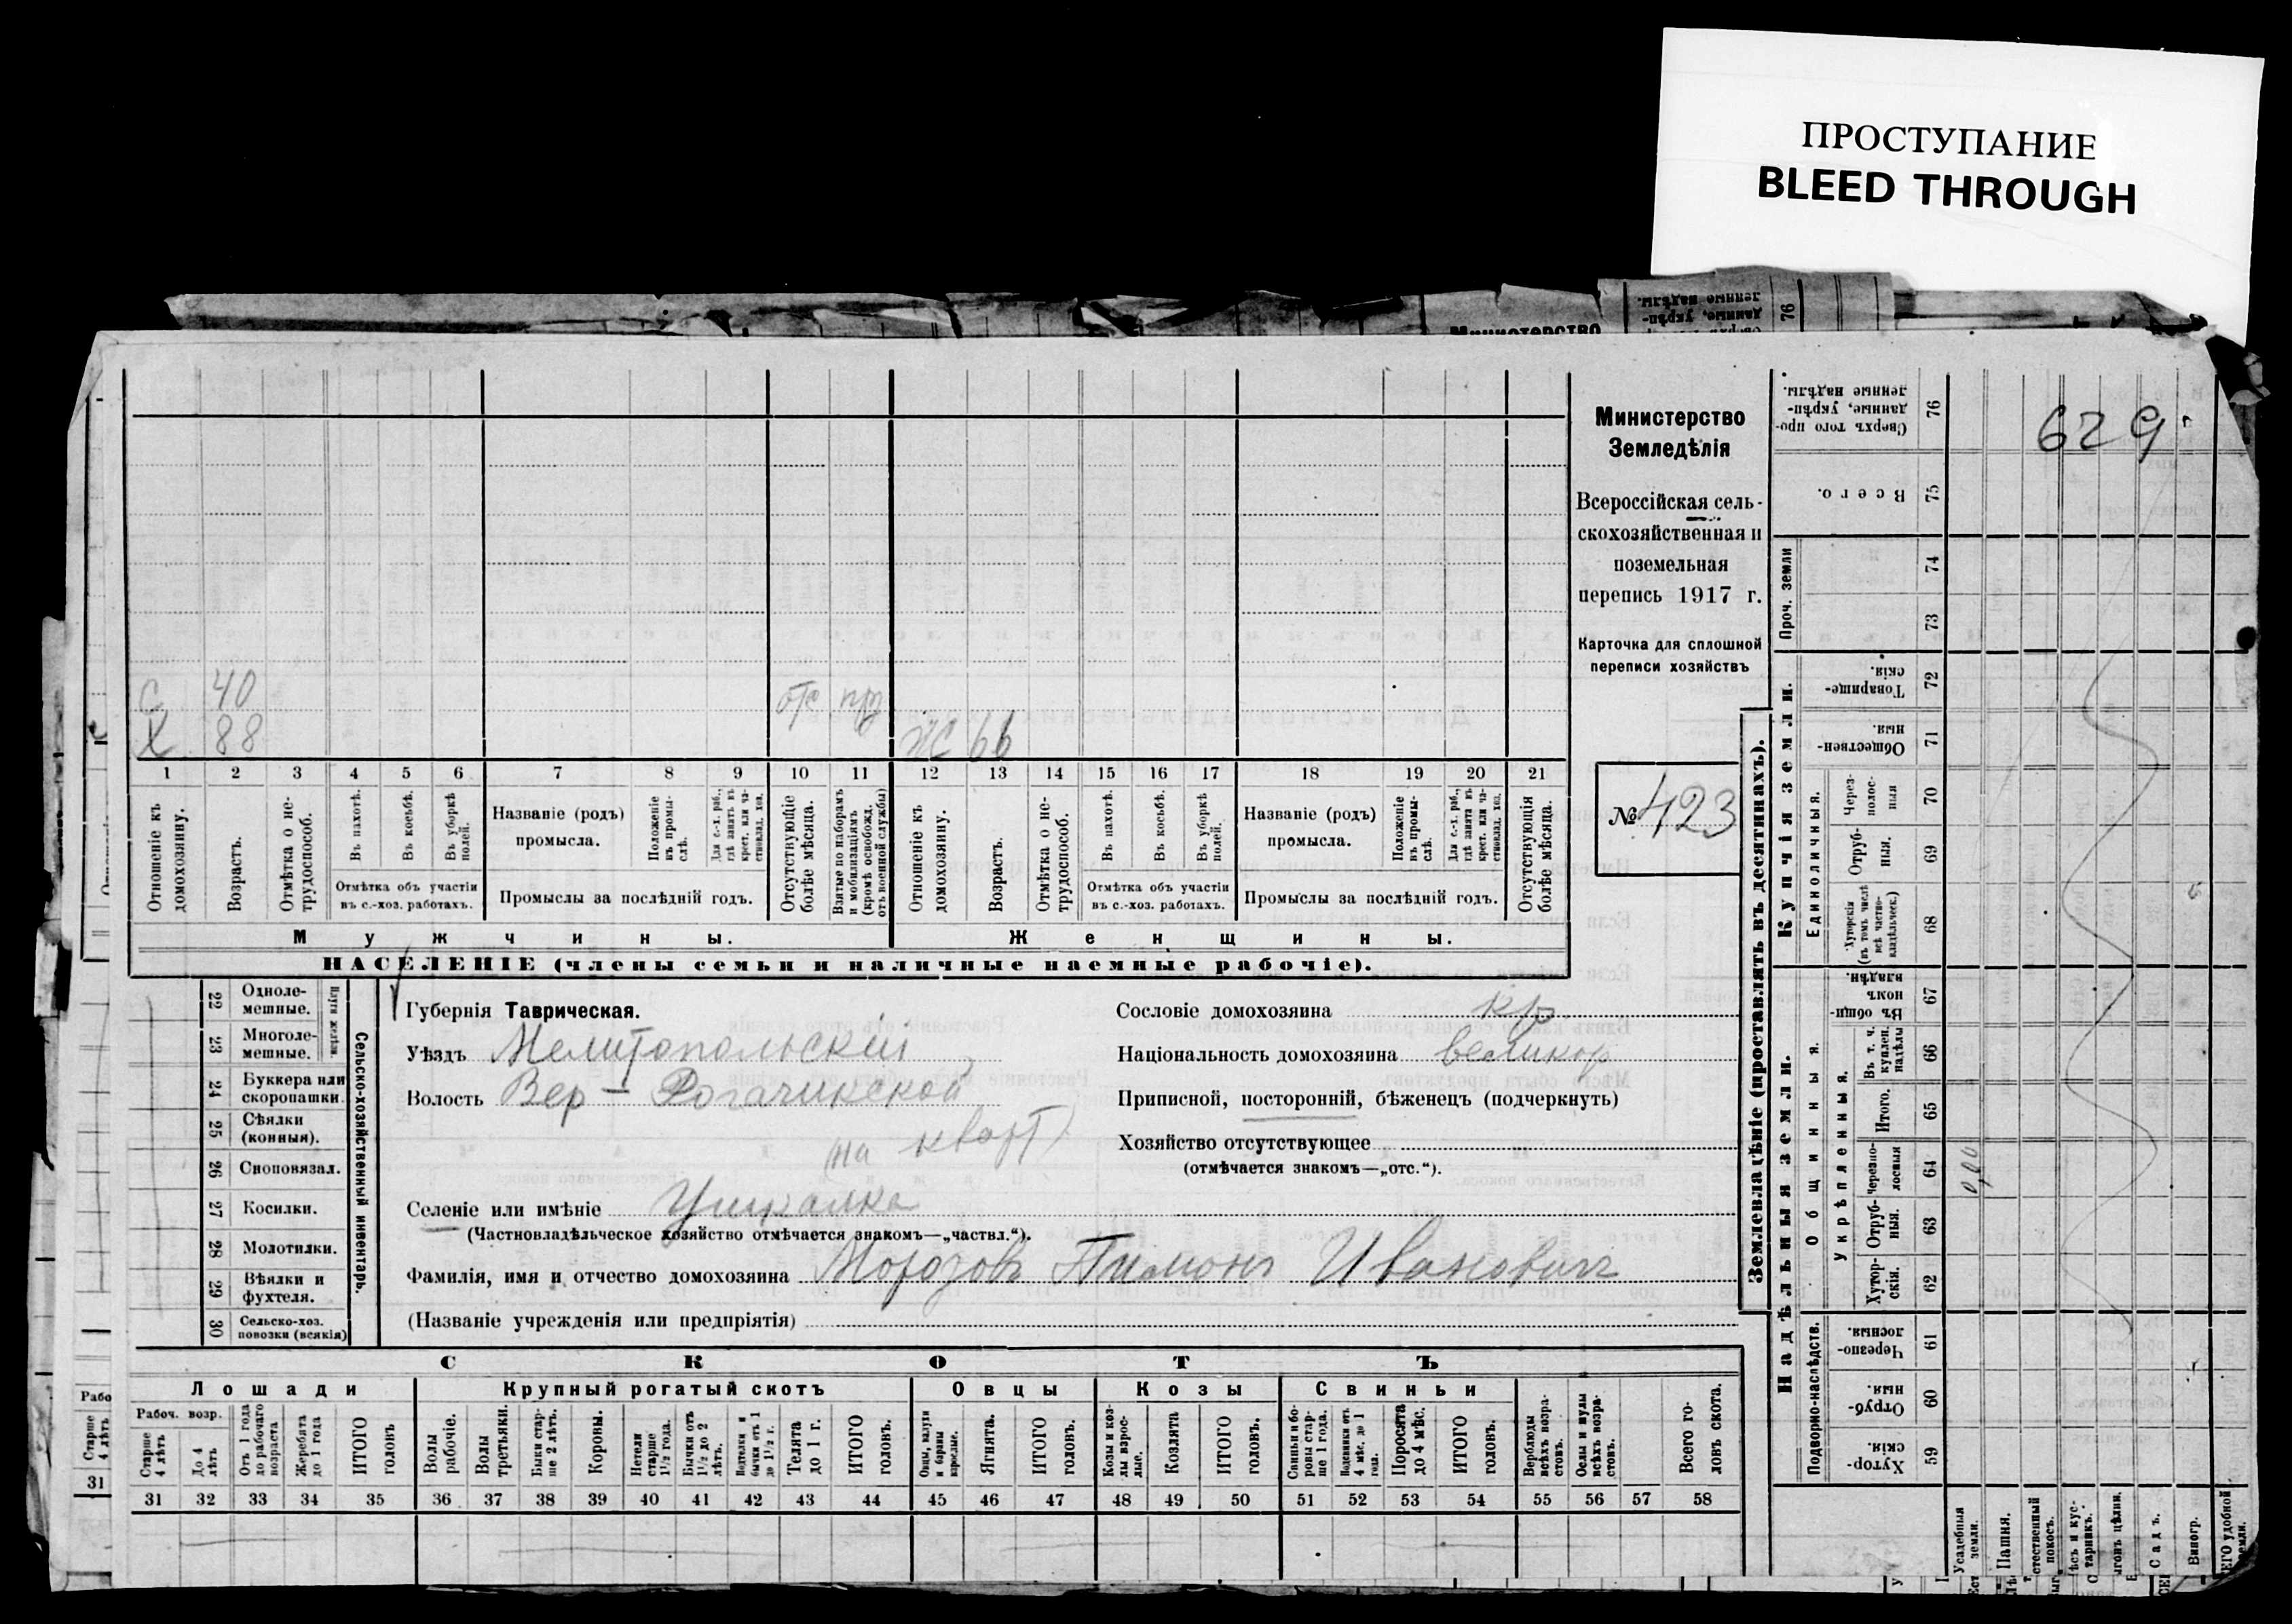 ПРОСТУПАНИЕ
BLEED THROUGH
Министерство
Земледѣлія
Всероссійская сель-
скохозяйственная и
поземельная
перепись 1917 г.
Карточка для сплошной
переписи хозяйствъ
№ 423
629
С 40
Х 88
Ж 66
1 2 3 4 5 6 7 8 9 10 11 12 13 14 15 16 17 18 19 20 21
Отношеніе къ домохозяину.
Возрастъ.
Отмѣтка о не-трудоспособ.
Въ пахотѣ.
Въ косьбѣ.
Въ уборкѣ полей.
Отмѣтка объ участіи
въ с.-хоз. работахъ.
Названіе (родъ)
промысла.
Положеніе въ промы-слѣ.
Для с.-х. раб., гдѣ занятъ въ крест. или ча-стновлад. хоз.
Промыслы за послѣдній годъ.
Отсутствующіе болѣе мѣсяца.
Взятые по наборамъ и мобилизаціямъ (кромѣ освобожд. отъ военной службы)
Отношеніе къ домохозяину.
Возрастъ.
Отмѣтка о не-трудоспособ.
Въ пахотѣ.
Въ косьбѣ.
Въ уборкѣ полей.
Отмѣтка объ участіи
въ с.-хоз. работахъ.
Названіе (родъ)
промысла.
Положеніе въ промы-слѣ.
Для с.-х. раб., гдѣ занята въ крест. или ча-стновлад. хоз.
Промыслы за послѣдній годъ.
Отсутствующія болѣе мѣсяца.
Мужчины.
Женщины.
НАСЕЛЕНІЕ (члены семьи и наличные наемные рабочіе).
22 Одноле-мешные.
23 Многоле-мешные.
24 Буккера или скоропашки.
25 Сѣялки (конныя).
26 Сноповязал.
27 Косилки.
28 Молотилки.
29 Вѣялки и фухтеля.
30 Сельско-хоз. повозки (всякія)
Сельско-хозяйственный инвентарь.
Губернія Таврическая.
Уѣздъ Мелитопольскій
Волость Вер - Рогачикской
на кварт
Селеніе или имѣніе Ушкалка
(Частновладѣльческое хозяйство отмѣчается знакомъ—„частвл.“).
Фамилія, имя и отчество домохозяина Морозовъ Пимонъ Ивановичъ
(Названіе учрежденія или предпріятія)
Сословіе домохозяина кр
Національность домохозяина великор
Приписной, посторонній, бѣженецъ (подчеркнуть)
Хозяйство отсутствующее
(отмѣчается знакомъ—„отс.“).
СКОТЪ
Лошади
Крупный рогатый скотъ
Овцы
Козы
Свиньи
Рабоч. возр.
Старше 4 лѣтъ
До 4 лѣтъ
Отъ 1 года до рабочаго возраста
Жеребята до 1 года
ИТОГО головъ
Волы рабочіе.
Волы третьяки.
Быки стар-ше 2 лѣтъ.
Коровы.
Нетели старше 1½ года.
Бычки отъ 1½ до 2 лѣтъ.
Телята до 1 г.
ИТОГО головъ.
Овцы, валухи и бараны взрослые.
Ягнята.
ИТОГО головъ.
Козы и коз-лы взрос-лые.
Козлята
ИТОГО головъ.
Свиньи и бо-ровы стар-ше 1 года.
Подсвинки отъ 4 мѣс. до 1 года.
Поросята до 4 мѣс.
ИТОГО головъ.
Верблюды всѣхъ возра-стовъ.
Ослы и мулы всѣхъ возра-стовъ.
Всего го-ловъ скота.
31 32 33 34 35 36 37 38 39 40 41 42 43 44 45 46 47 48 49 50 51 52 53 54 55 56 57 58
Землевладѣніе (проставлять въ десятинахъ).
Надѣльныя земли.
Купчія земли.
Проч. земли
Подворно-наслѣдств.
Общинныя.
Укрѣпленныя.
Единоличныя.
76 Сверхъ того про-данные, укрѣп-ленные надѣлы.
75 Всего.
74
73
72 Товарище-скія.
71 Обществен-ныя.
70 Через-полос-ныя
69 Отруб-ныя.
68 Хуторскія (въ томъ числѣ всѣ частно-владѣльческ.)
67 Въ общи-номъ владѣн.
66 Въ т. ч. куплен. надѣлы
65 Итого.
64 Черезпо-лосныя
63 Отруб-ныя.
62 Хутор-скія.
61 Черезпо-лосныя.
60 Отруб-ныя.
59 Хутор-скія.
Усадебныя земли.
Пашня.
Садъ.
Виногр.